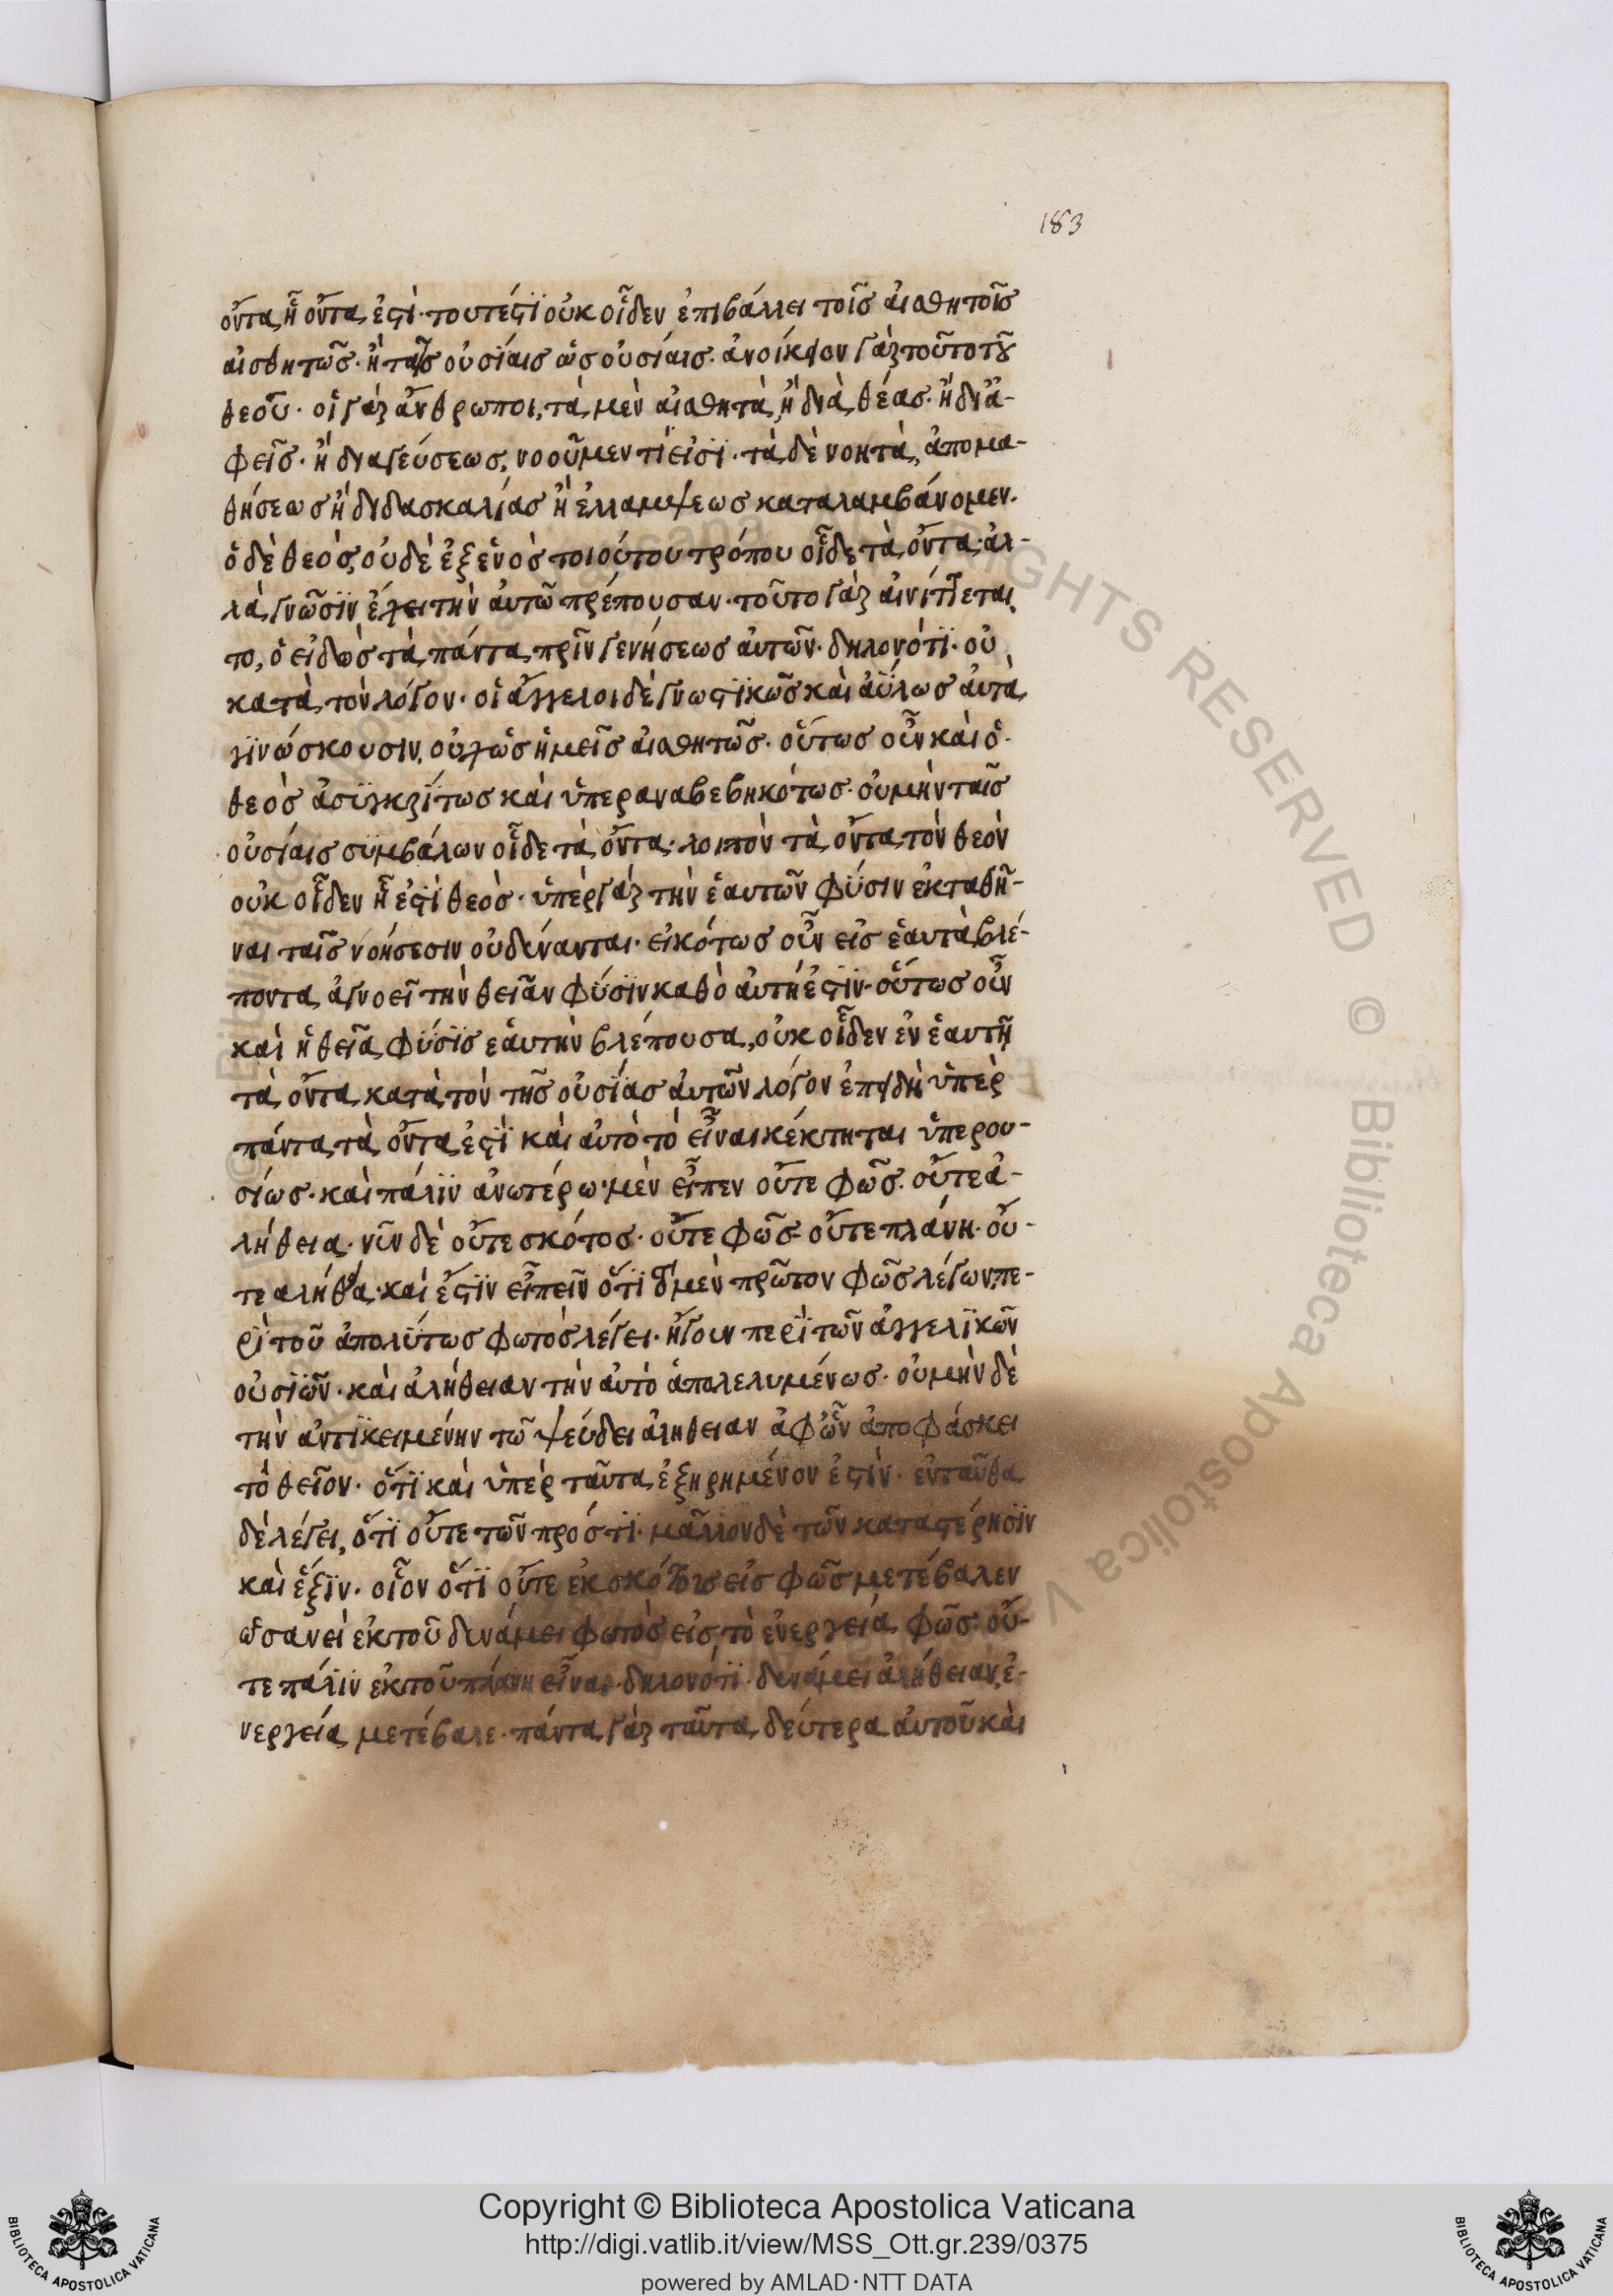 183
ὄντα, ᾗ ὄντα ἐστί· τουτέστϊ οὐκ οἶδεν ἐπιβάλλει τοῖς αἰσθητοῖς
αἰσθητῶς· ἢ ταῖς οὐσίαις ὡς οὐσίαις· ἀνοίκειον γὰρ τοῦτο τοῦ
θεοῦ· οἱ γὰρ ἄνθρωποι, τὰ μὲν αἰσθητὰ, ἢ διὰ θέας· ἢ διὰ ἁ-
φεῖς· ἢ διαγεύσεως, νοοῦμεν τί εἰσϊ· τὰ δὲ νοητὰ, ἀπομα-
θήσεως ἢ διδασκαλίας ἢ ἐλλάμψεως καταλαμβάνομεν·
ὁ δὲ θεὸς, οὐδὲ ἐξενὸς τοιούτου τρόπου οἶδε τὰ ὄντα· ἀλ-
λὰ γνῶσϊν ἔχει τὴν ἀυτῶ πρέπουσαν· τοῦτο γὰρ ἀινίττεται
το, ὁ εἰδὼς τὰ πάντα πρῒν γενήσεως ἀυτῶν· δηλονότϊ· οὐ
κατὰ τὸν λόγον· οἱ ἄγγελοι δὲ γνωστϊκῶς καὶ ἀΰλως ἀυτὰ
γϊνώσκουσιν, οὐχ ὡς ἡμεῖς αἰσθητῶς· οὕτως οὖν καὶ ὁ
θεὸς ἀσϋγκρίτως καὶ ὑπεραναβεβηκότως· οὐμὴν ταῖς
οὐσίαις σϋμβάλων οἶδε τὰ ὄντα· λοιπὸν τὰ ὄντα τὸν θεὸν
οὐκ οἶδεν ᾗ ἐστϊ θεὸς· ὑπὲρ γὰρ τὴν ἑαυτῶν φύσιν ἐκταθῆ-
ναι ταῖς νοήσεσιν οὐ δύνανται· εἰκότως οὖν εἰς ἑαυτὰ βλέ-
ποντα ἀγνοεῖ τὴν θεῖαν φύσϊν καθὸ ἀυτή ἐστϊν· οὕτως οὖν
καὶ ἡ θεῖα φύσϊς ἑαυτὴν βλέπουσα, οὐκ οἶδεν ἐν ἑαυτῇ
τὰ ὄντα κατὰ τὸν τῆς οὐσΐας ἀυτῶν λόγον ἐπειδὴ ὑπὲρ
πάντα τὰ ὄντα ἐστϊ καὶ αὐτὸ τὸ εἶναι κέκτηται ὑπερου-
σίως· καὶ πάλϊν ἀνωτέρω μὲν εἶπεν οὔτε φῶς· οὔτε ἀ-
λήθεια· νῦν δὲ οὔτε σκότος· οὔτε φῶς· οὔτε πλάνη· οὔ-
τε αλήθεια· καὶ ἔστϊν εἰπεῖν ὅτϊ ὁ μὲν πρῶτον φῶς λέγων, πε-
ρὶ τοῦ ἀπολύτως φωτὸς λέγει· ἤγουν περϊ τῶν ἀγγελϊκῶν
οὐσϊῶν· καὶ ἀλήθειαν τὴν ἀυτὸ ἀπολελυμένως· οὐμὴν δὲ
τὴν ἀντϊκειμένην τῶ ψεύδει ἀλήθειαν ἀφὧν ἀποφάσκει
τὸ θεῖον· ὅτϊ καὶ ὑπὲρ ταῦτα ἐξηρημένον ἐστὶν· ἐνταῦθα
δὲ λέγει, ὅτϊ οὔτε τῶν πρόστϊ· μᾶλλον δὲ τῶν καταστέρησϊν
καὶ ἕξϊν· οἷον ὅτϊ οὔτε ἐκ σκότους εἰς φῶς μετέβαλεν
ὡσανεὶ ἐκ τοῦ δυνάμει φωτὸς εἰς τὸ ἐνεργεία φῶς· οὔ-
τε πάλϊν ἐκ τοῦ πλάνη εἶναι δηλονότϊ· δυνάμει ἀλήθειαν, ἐ-
νεργεία μετέβαλε· πάντα γὰρ ταῦτα δεύτερα ἀυτοῦ καὶ
Copyright © Biblioteca Apostolica Vaticana
http://digi.vatlib.it/view/MSS_Ott.gr.239/0375
powered by AMLAD·NTT DATA